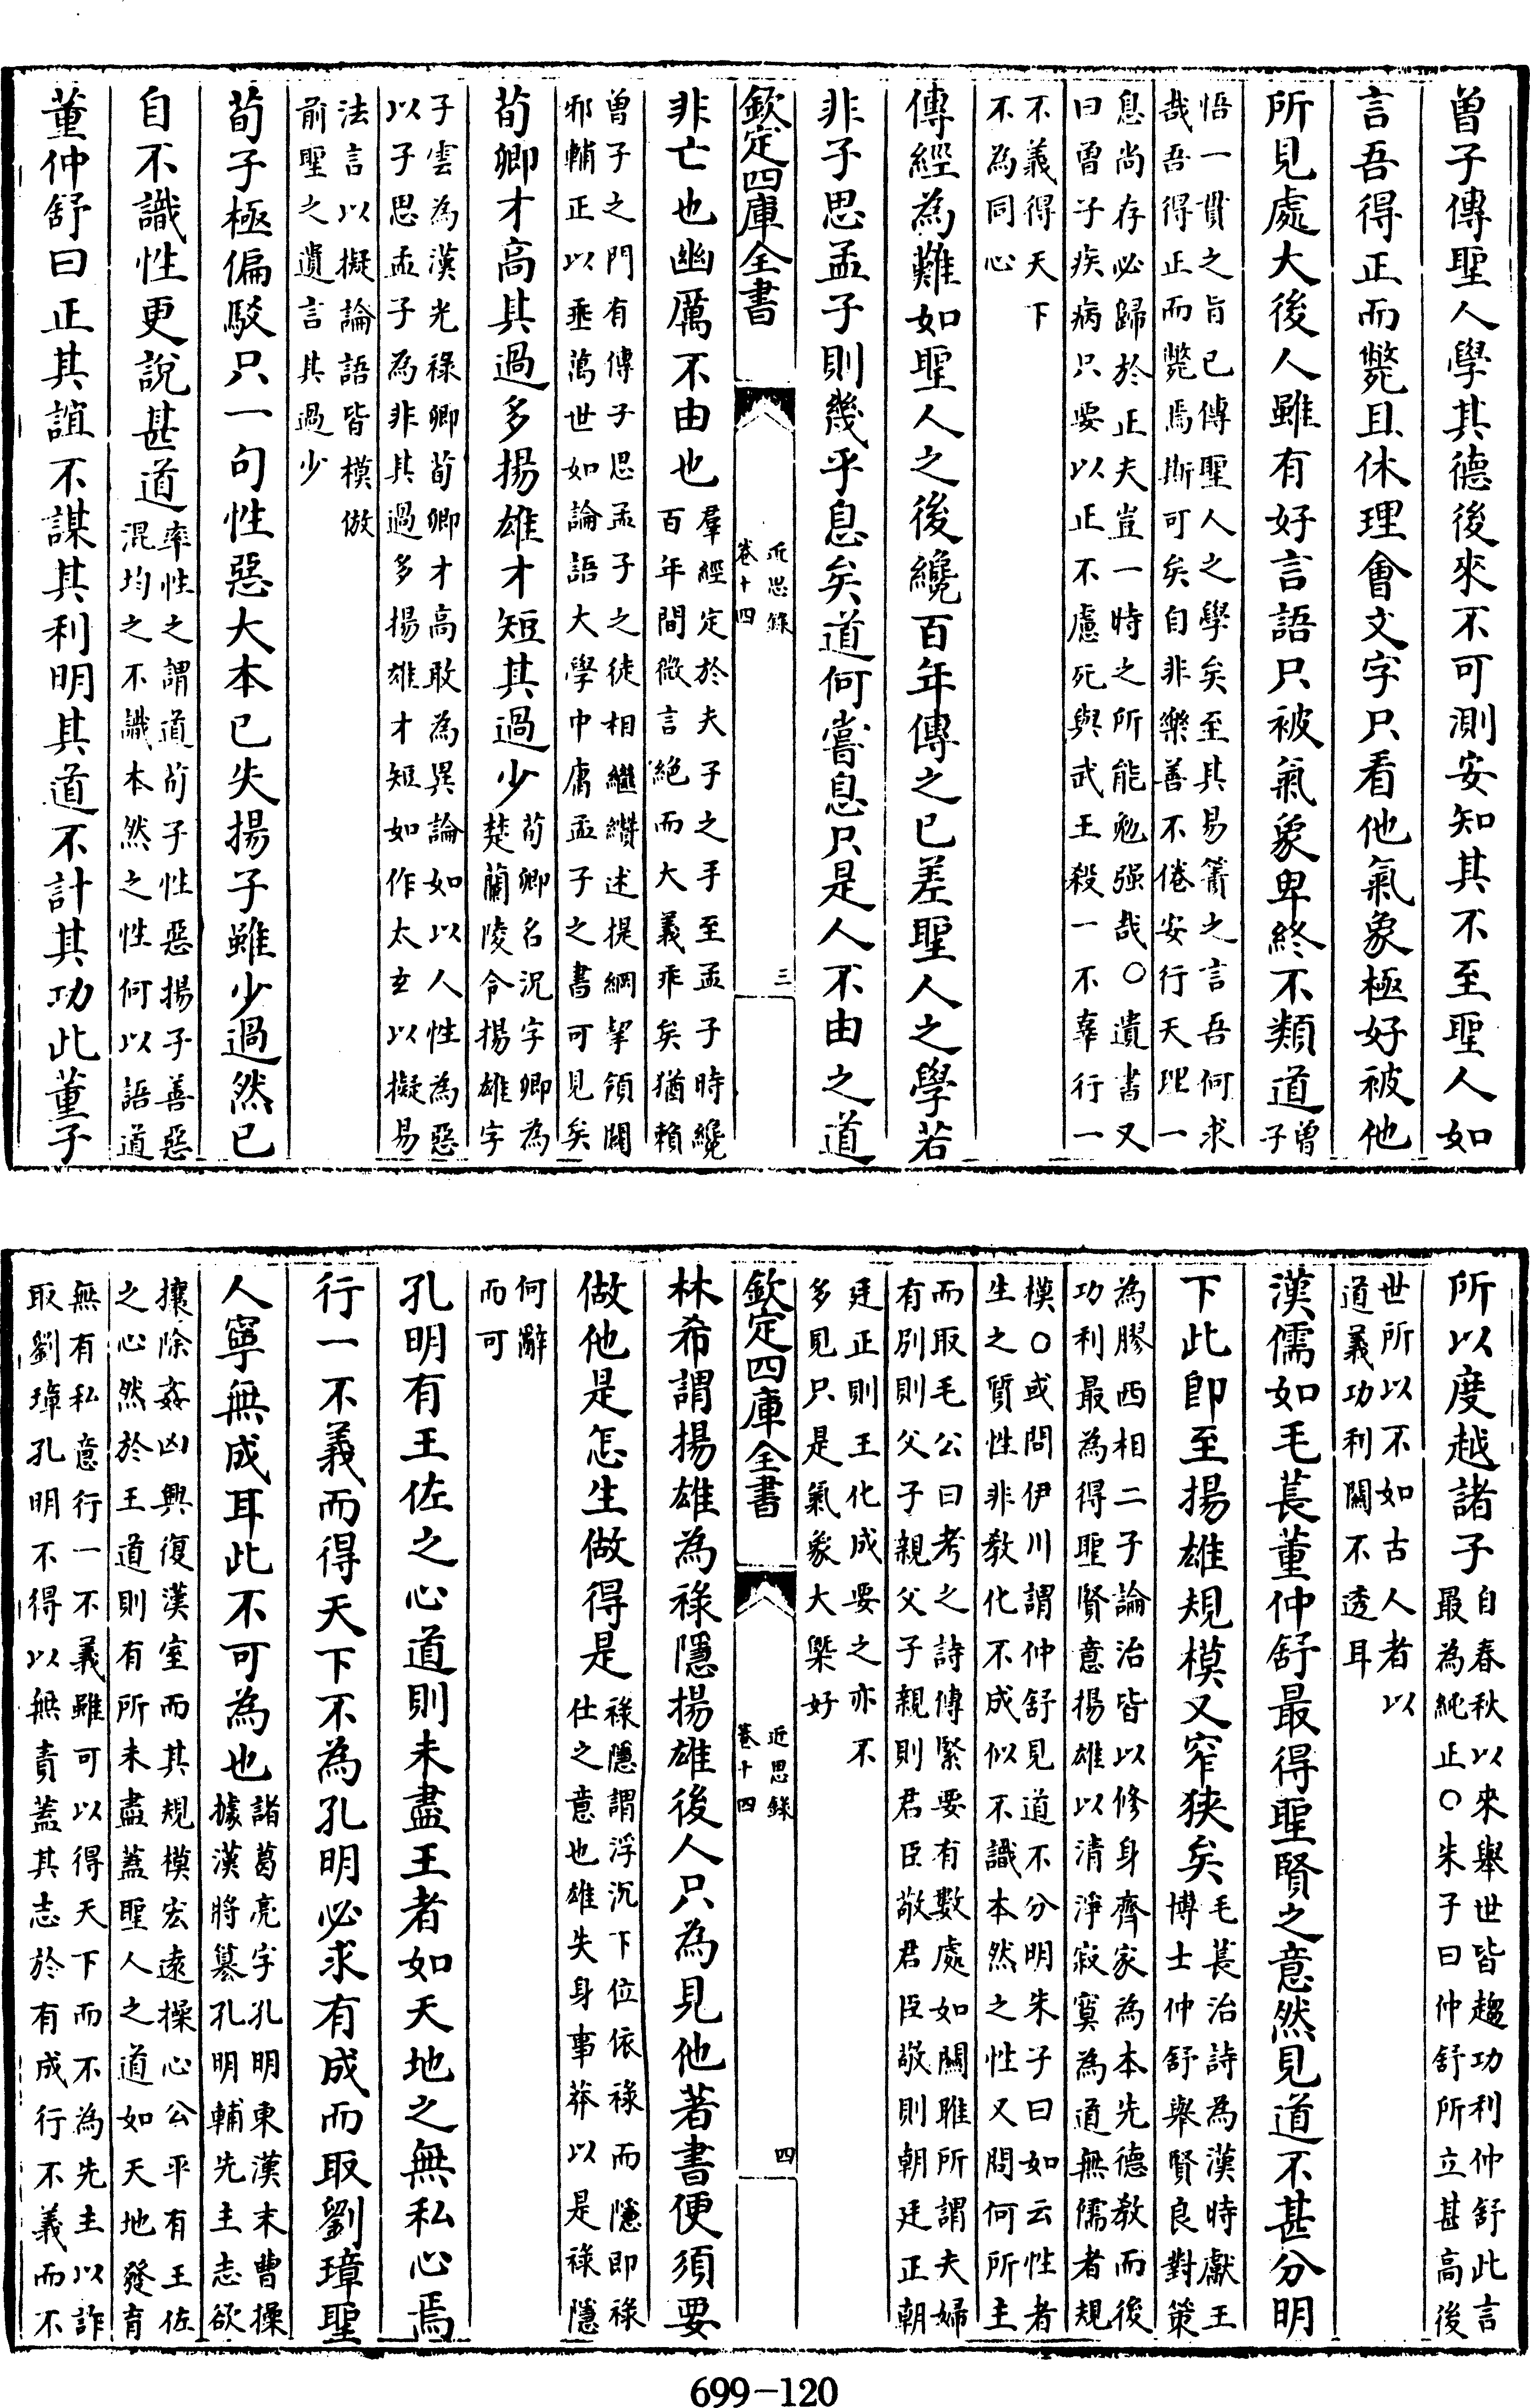 曾子傳聖人學其德後來不可測安知其不至聖人如
言吾得正而斃且休理會文字只看他氣象極好被他
所見處大後人雖有好言語只被氣象卑終不類道曾
子
悟一貫之旨已傳聖人之學矣至其易簀之言吾何求
哉吾得正而斃焉斯可矣自非樂善不倦安行天理一
息尚存必歸於正夫豈一時之所能勉强哉○遺書又
曰曾子疾病只要以正不慮死與武王殺一不辜行一
不義得天下
不為同心
傳經為難如聖人之後纔百年傳之已差聖人之學若
非子思孟子則幾乎息矣道何嘗息只是人不由之道
欽定四庫全書
近思錄
卷十四
三
非亡也幽厲不由也羣經定於夫子之手至孟子時纔
百年間微言絶而大義乖矣猶賴
曾子之門有傳子思孟子之徒相繼纘述提綱挈領闢
邪輔正以垂萬世如論語大學中庸孟子之書可見矣
荀卿才高其過多揚雄才短其過少荀卿名況字卿為
楚蘭陵令揚雄字
子雲為漢光祿卿荀卿才高敢為異論如以人性為惡
以子思孟子為非其過多揚雄才短如作太玄以擬易
法言以擬論語皆模倣
前聖之遺言其過少
荀子極偏駁只一句性惡大本已失揚子雖少過然已
自不識性更說甚道率性之謂道荀子性惡揚子善惡
混均之不識本然之性何以語道
董仲舒曰正其誼不謀其利明其道不計其功此董子
所以度越諸子自春秋以來舉世皆趨功利仲舒此言
最為純正○朱子曰仲舒所立甚高後
世所以不如古人者以
道義功利關不透耳
漢儒如毛萇董仲舒最得聖賢之意然見道不甚分明
下此即至揚雄規模又窄狹矣毛萇治詩為漢時獻王
博士仲舒舉賢良對策
為膠西相二子論治皆以修身齊家為本先德教而後
功利最為得聖賢意揚雄以清淨寂寞為道無儒者規
模○或問伊川謂仲舒見道不分明朱子曰如云性者
生之質性非教化不成似不識本然之性又問何所主
而取毛公曰考之詩傳緊要有數處如關雎所謂夫婦
有別則父子親父子親則君臣敬君臣敬則朝廷正朝
廷正則王化成要之亦不
多見只是氣象大槩好
欽定四庫全書
近思錄
卷十四
四
林希謂揚雄為祿隱揚雄後人只為見他著書便須要
做他是怎生做得是祿隱謂浮沉下位依祿而隱即祿
仕之意也雄失身事莽以是祿隱
何辭
而可
孔明有王佐之心道則未盡王者如天地之無私心焉
行一不義而得天下不為孔明必求有成而取劉璋聖
人寧無成耳此不可為也諸葛亮字孔明東漢末曹操
據漢將簒孔明輔先主志欲
攘除姦凶興復漢室而其規模宏遠操心公平有王佐
之心然於王道則有所未盡蓋聖人之道如天地發育
無有私意行一不義雖可以得天下而不為先主以詐
取劉璋孔明不得以無責蓋其志於有成行不義而不
699-120